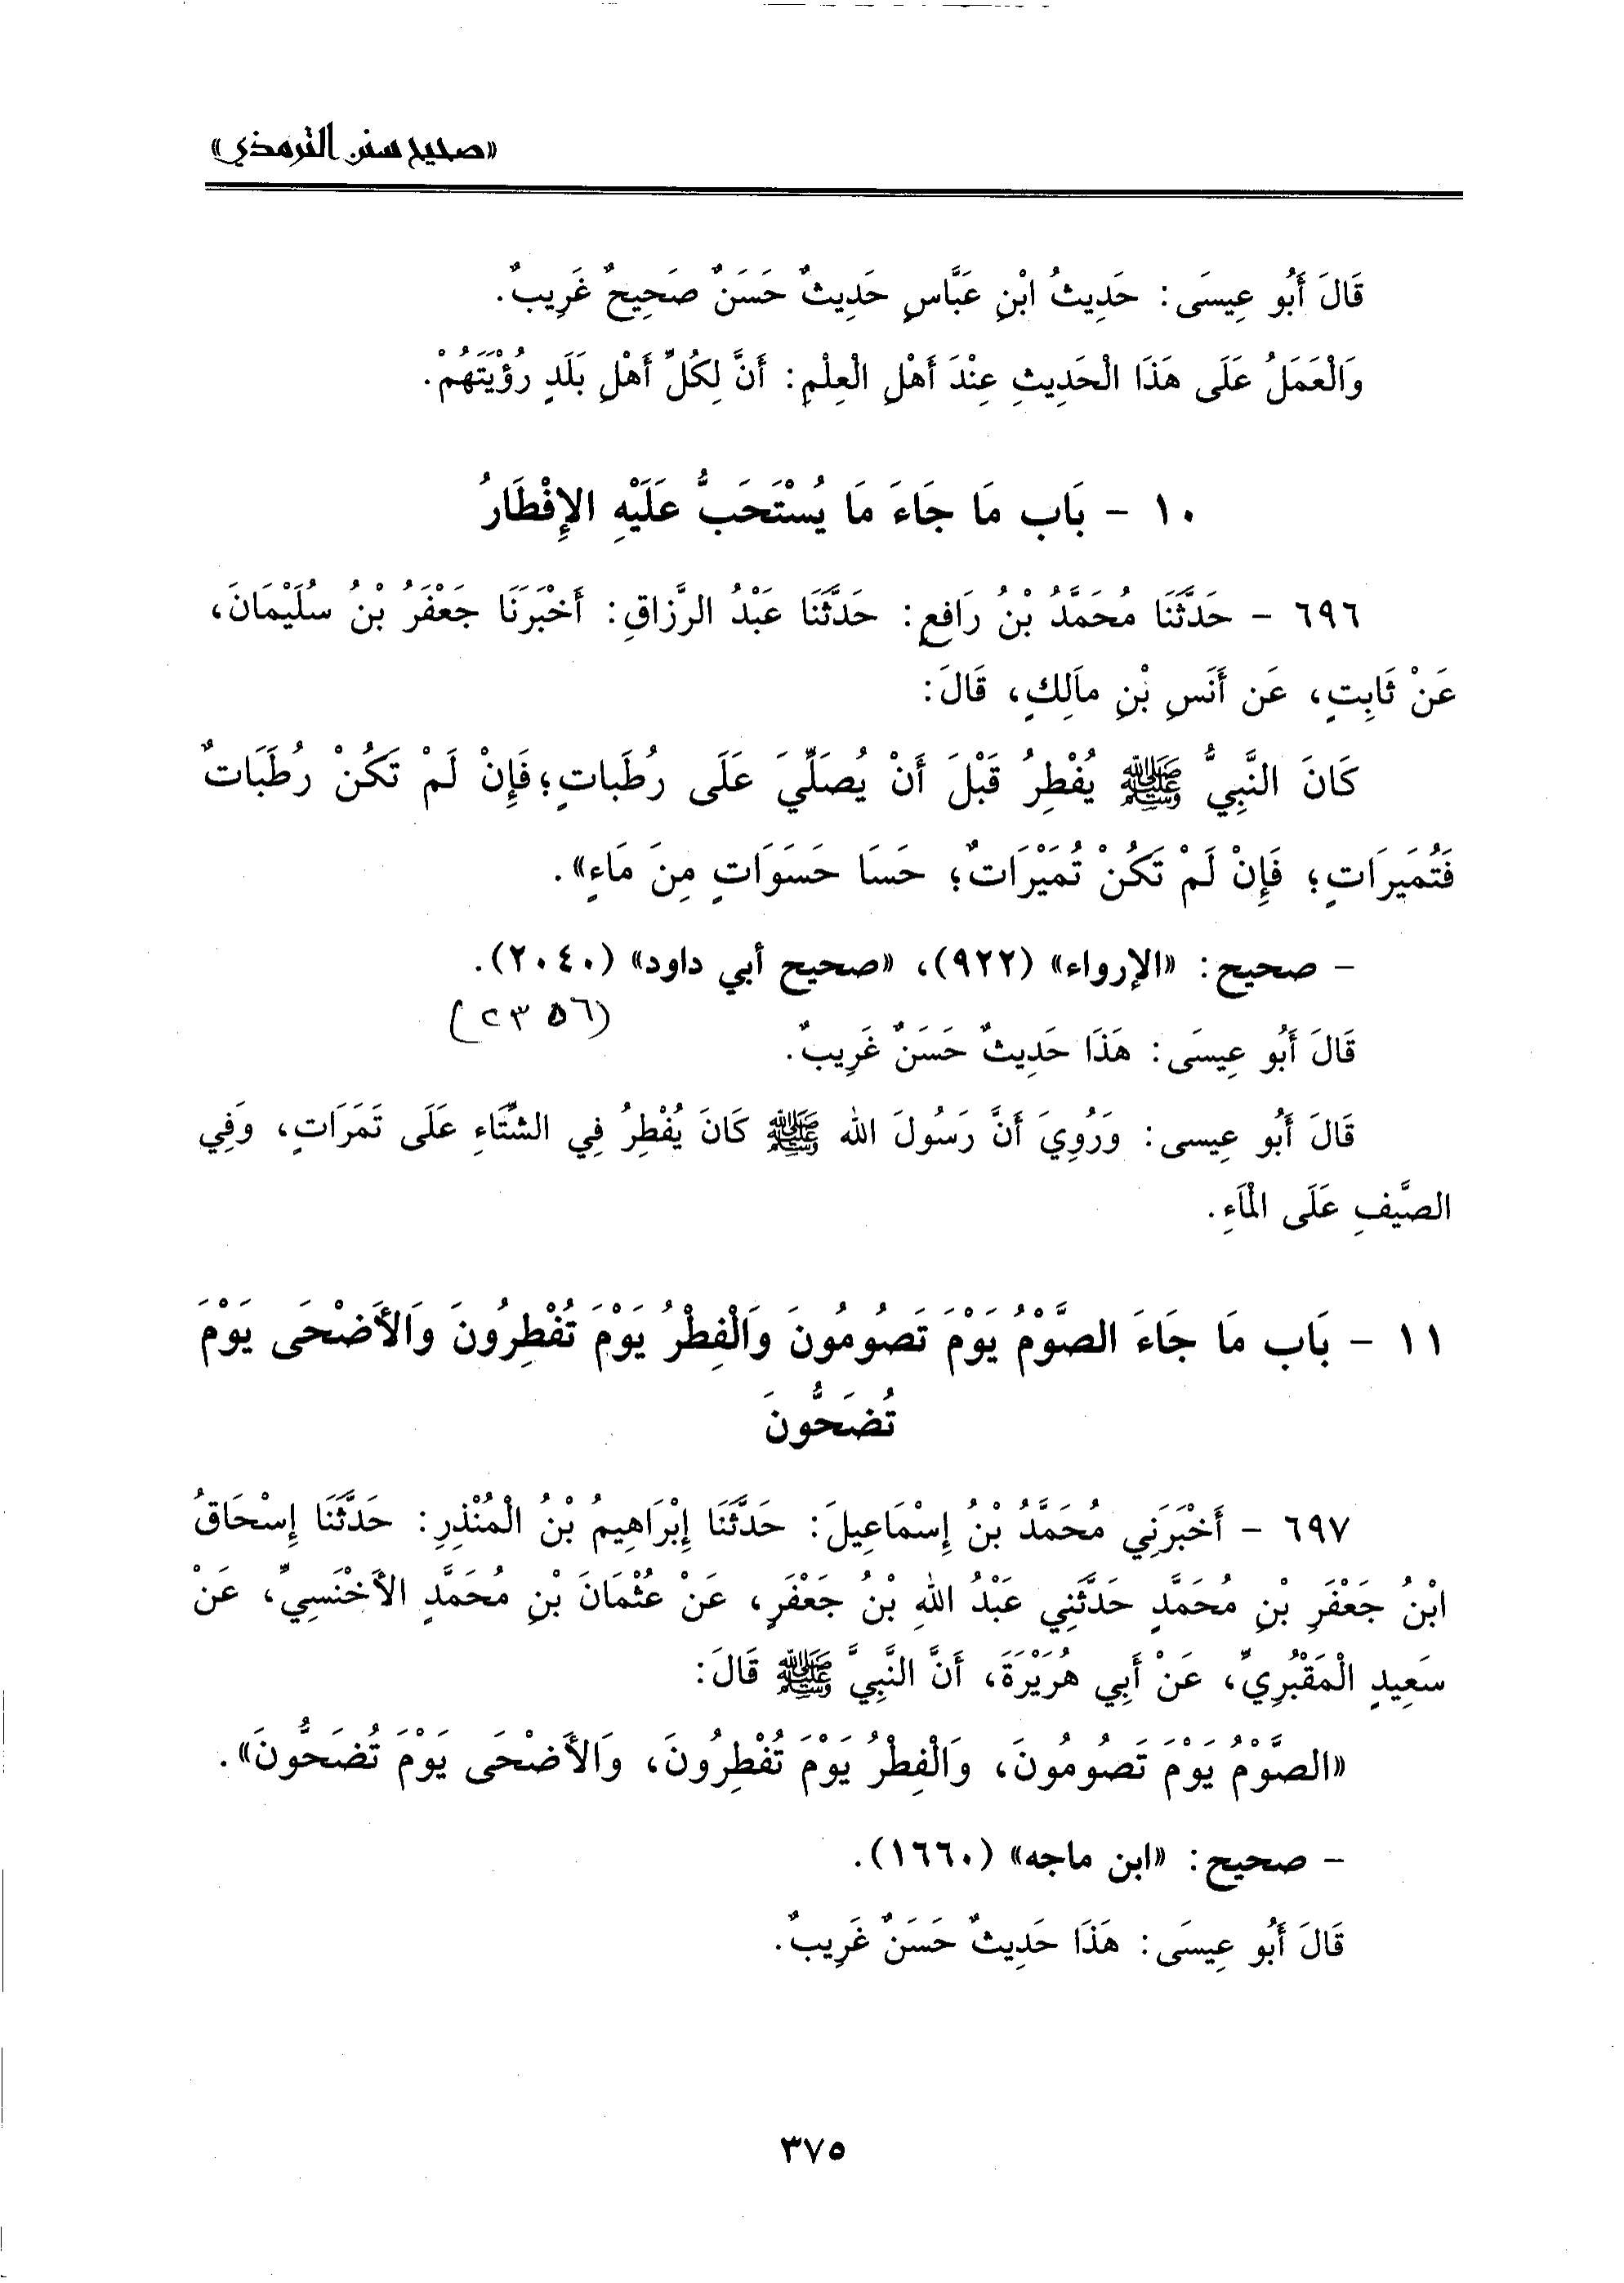 «صحيح سنن الترمذي»
قَالَ أَبُو عِيسَى: حَدِيثُ ابْنِ عَبَّاسٍ حَدِيثٌ حَسَنٌ صَحِيحٌ غَرِيبٌ.
وَالْعَمَلُ عَلَى هَذَا الْحَدِيثِ عِنْدَ أَهْلِ الْعِلْمِ: أَنَّ لِكُلِّ أَهْلِ بَلَدٍ رُؤْيَتَهُمْ.
١٠ - بَاب مَا جَاءَ مَا يُسْتَحَبُّ عَلَيْهِ الإِفْطَارُ
٦٩٦ - حَدَّثَنَا مُحَمَّدُ بْنُ رَافِعٍ: حَدَّثَنَا عَبْدُ الرَّزاقِ: أَخْبَرَنَا جَعْفَرُ بْنُ سُلَيْمَانَ،
عَنْ ثَابِتٍ، عَن أَنَسِ بْنِ مالِكٍ، قَالَ:
كَانَ النَّبِيُّ ﷺ يُفْطِرُ قَبْلَ أَنْ يُصَلِّيَ عَلَى رُطَباتٍ؛ فَإِنْ لَمْ تَكُنْ رُطَبَاتٌ
فَتُمَيرَاتٍ؛ فَإِنْ لَمْ تَكُنْ تُمَيْرَاتٌ؛ حَسَا حَسَوَاتٍ مِنَ مَاءٍ».
- صحيح: «الإرواء» (٩٢٢)، «صحيح أبي داود» (٢٠٤٠).
(٢٣٥٦)
قَالَ أَبُو عِيسَى: هَذَا حَدِيثٌ حَسَنٌ غَرِيبٌ.
قَالَ أَبُو عِيسى: وَرُوِيَ أَنَّ رَسُولَ الله ﷺ كَانَ يُفْطِرُ فِي الشِّتَاءِ عَلَى تَمَرَاتٍ، وَفِي
الصَّيفِ عَلَى الْمَاءِ.
١١ - بَاب مَا جَاءَ الصَّوْمُ يَوْمَ تَصُومُونَ وَالْفِطْرُ يَوْمَ تُفْطِرُونَ وَالأَضْحَى يَوْمَ
تُضَحُّونَ
٦٩٧ - أَخْبَرَنِي مُحَمَّدُ بْنُ إِسْمَاعِيلَ: حَدَّثَنَا إِبْرَاهِيمُ بْنُ الْمُنْذِرِ: حَدَّثَنَا إِسْحَاقُ
ابْنُ جَعْفَرِ بْنِ مُحَمَّدٍ حَدَّثَنِي عَبْدُ اللهِ بْنُ جَعْفَرٍ، عَنْ عُثْمَانَ بْنِ مُحَمَّدٍ الأَخْنَسِيِّ، عَنْ
سَعِيدٍ الْمَقْبُرِيِّ، عَنْ أَبِي هُرَيْرَةَ، أَنَّ النَّبِيَّ ﷺ قَالَ:
«الصَّوْمُ يَوْمَ تَصُومُونَ، وَالْفِطْرُ يَوْمَ تُفْطِرُونَ، وَالأَضْحَى يَوْمَ تُضَحُّونَ».
- صحيح: «ابن ماجه» (١٦٦٠).
قَالَ أَبُو عِيسَى: هَذَا حَدِيثٌ حَسَنٌ غَرِيبٌ.
٣٧٥